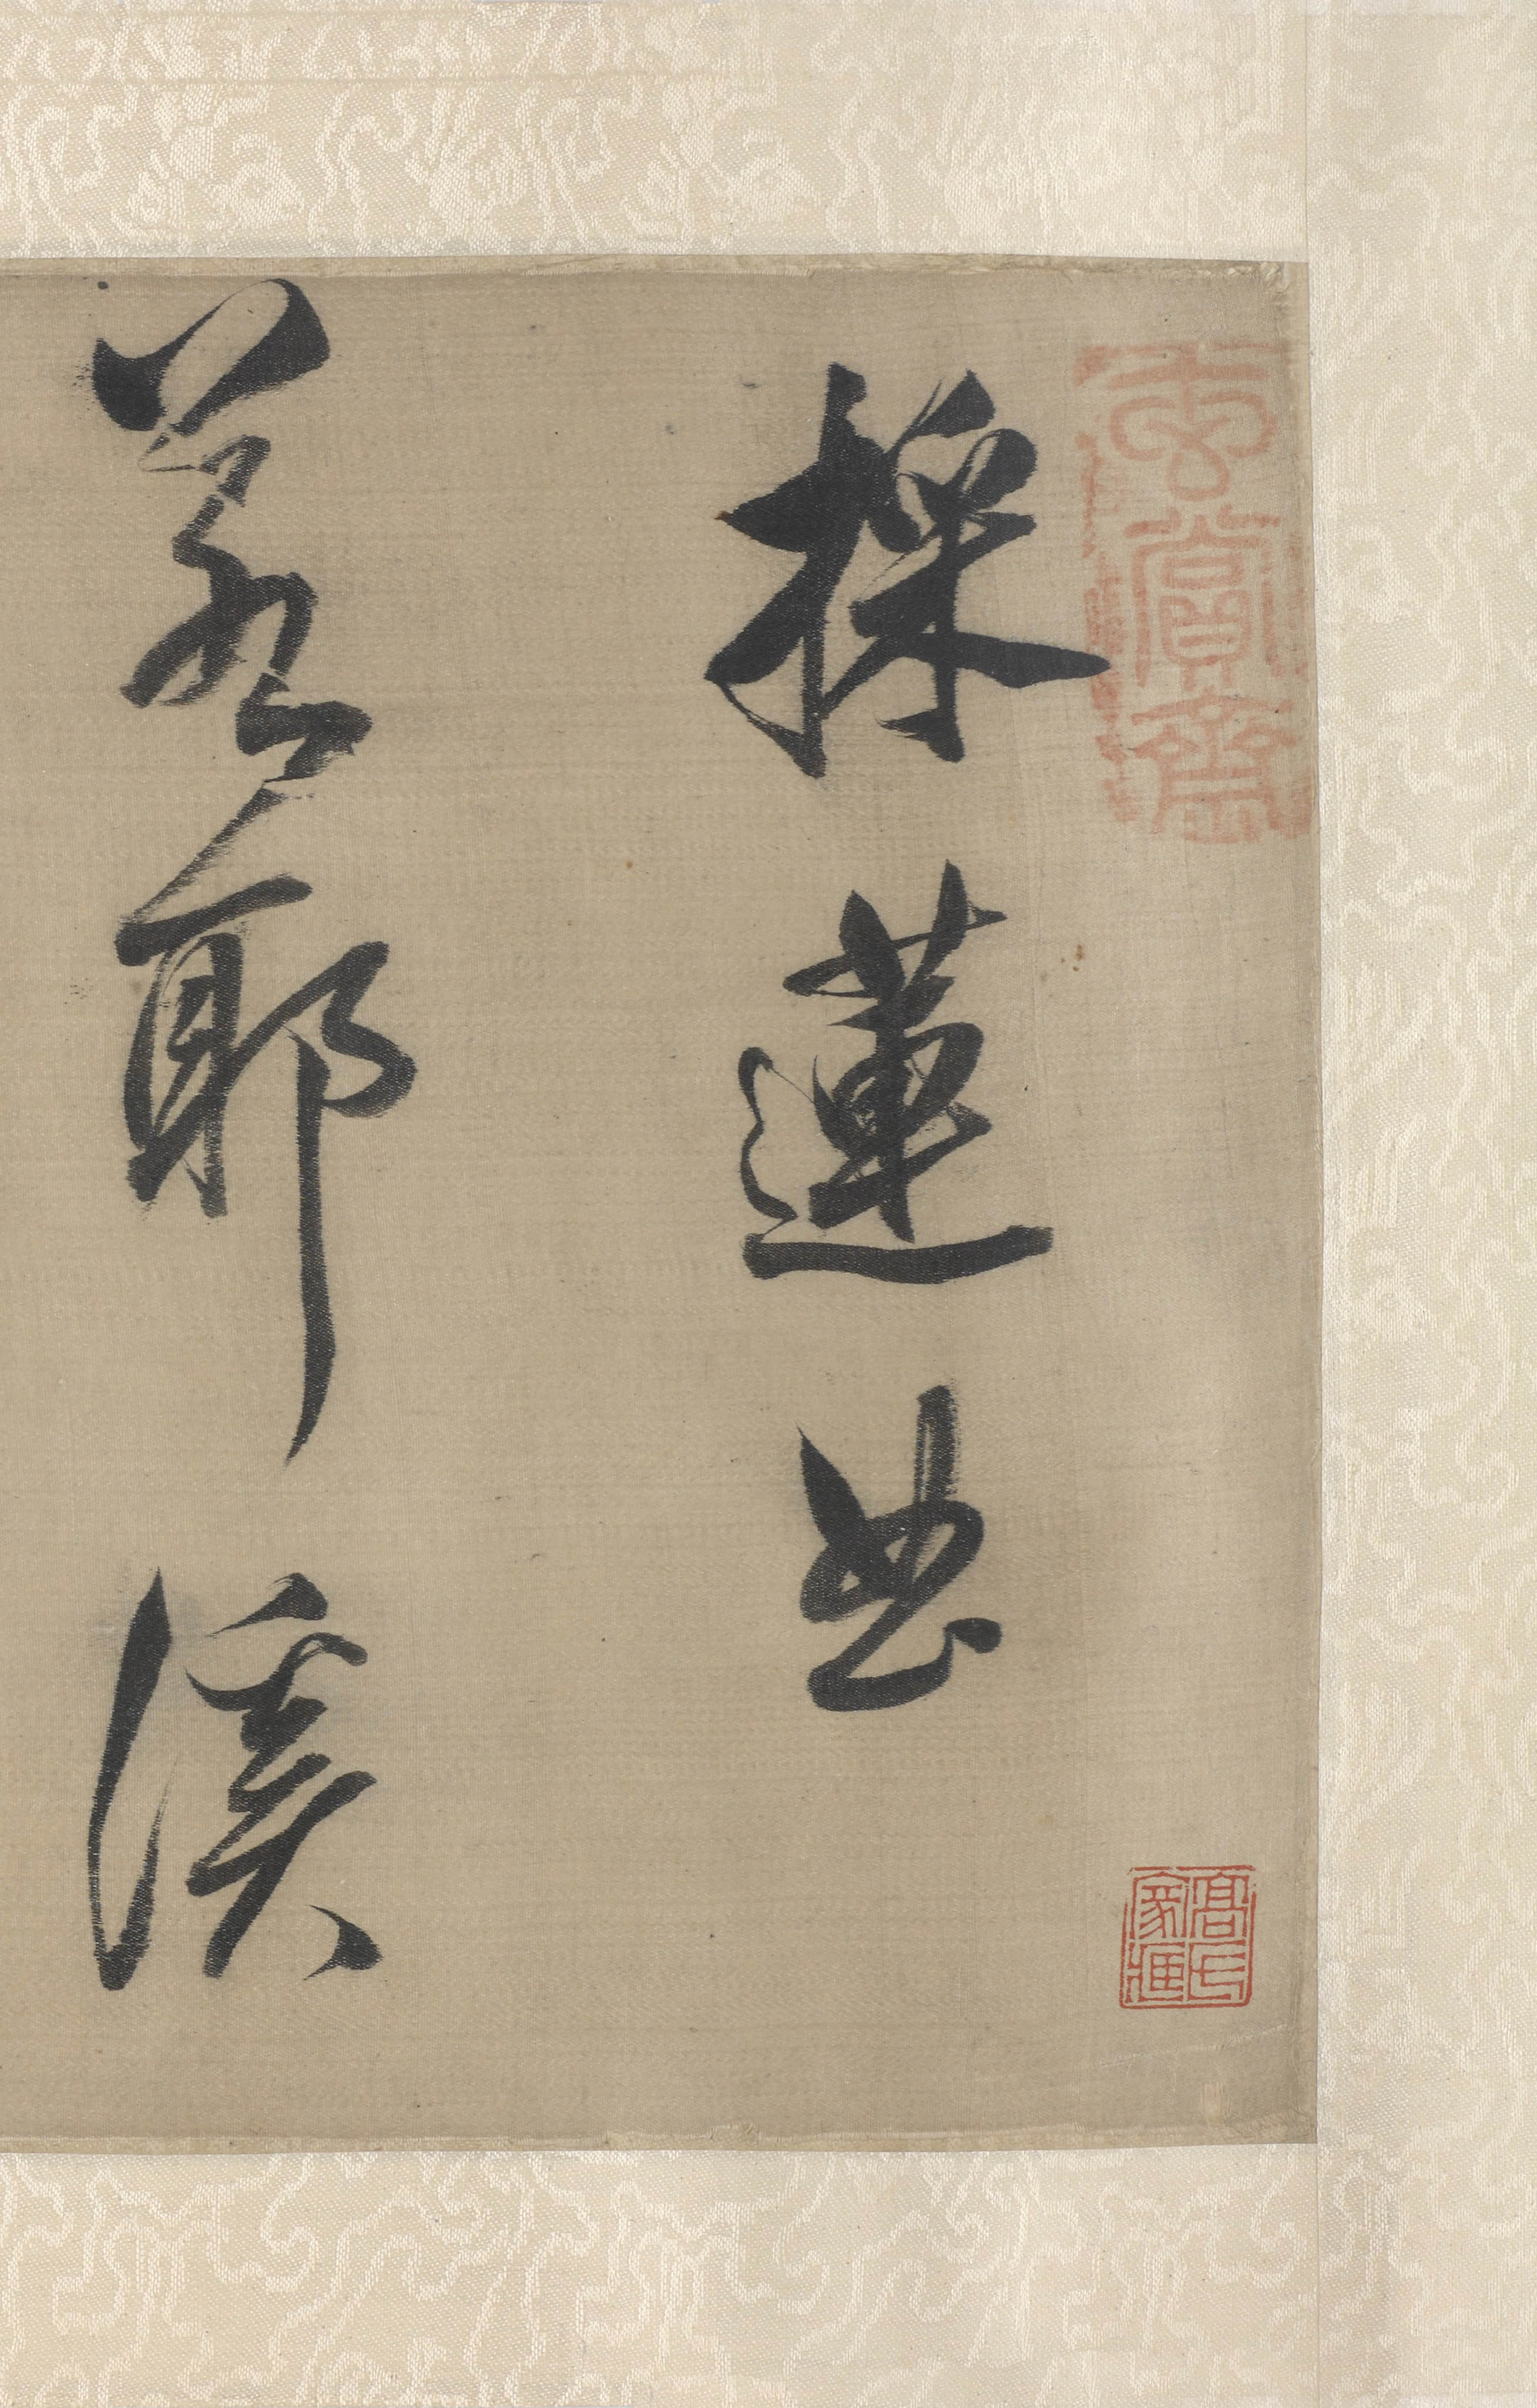 玄賞齋
高氏家藏
採蓮曲
若耶溪